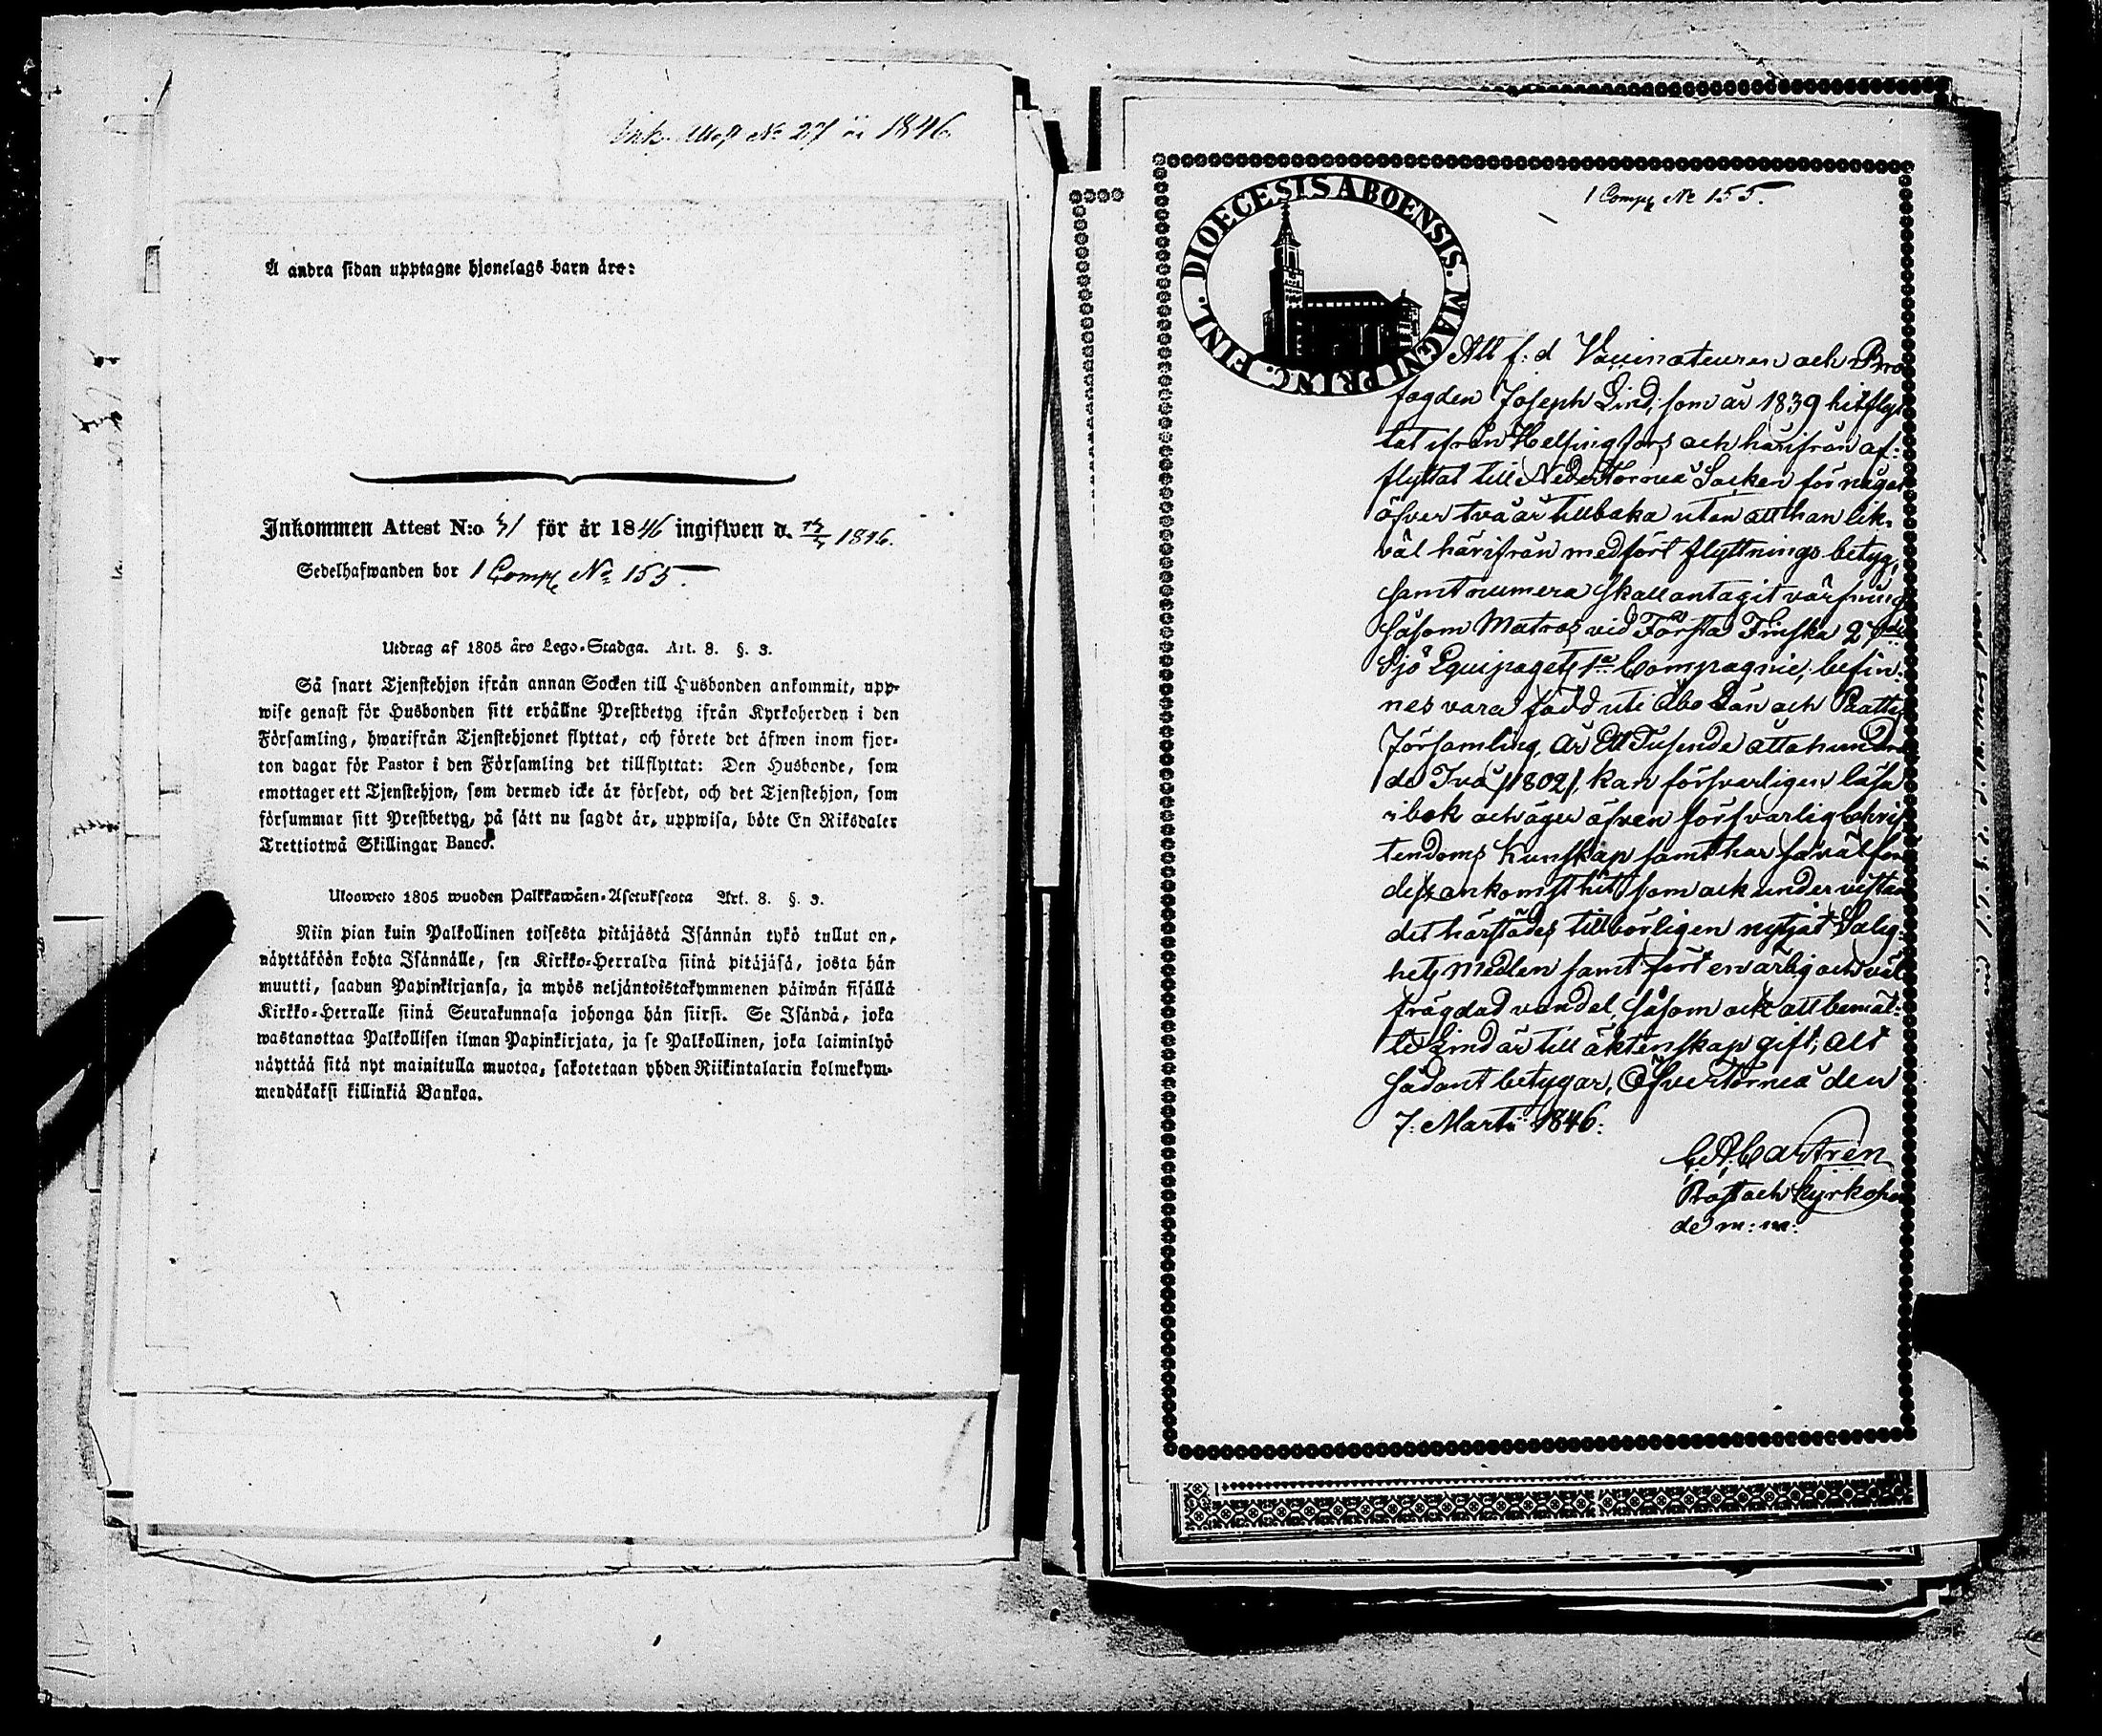 Ink. Attest No 27 år 1846
Å andra sidan upptagne hjonelags barn äro:
Inkommen Attest N:o 31 för år 1846 ingifwen d. 1846.
Sedelhafwanden bor 1 Comp No 155.
Utdrag af 1805 års Lego-Stadga. Art. 8. §. 3.
Så snart Tjenstehjon ifrån annan Socken till Husbonden ankommit, upp-
wise genast för Husbonden sitt erhållne Prestbetyg ifrån Kyrkoherden i den
Församling, hwarifrån Tjenstehjonet flyttat, och förete det äfwen inom fjor-
ton dagar för Pastor i den Församling det tillflyttat: Den Husbonde, som
emottager ett Tjenstehjon, som dermed icke är försedt, och det Tjenstehjon, som
försummar sitt Prestbetyg, på sätt nu sagdt är, uppwisa, böte En Riksdaler
Trettiotwå Skillingar Banco.
Ulosweto 1805 wuoden Palkkawäen-Asetuksesta Art. 8. §. 3.
Niin pian kuin Palkollinen toisesta pitäjästä Isännän tykö tullut on,
näyttäköön kohta Isännälle, sen Kirkko-Herralda siinä pitäjäsä, josta hän
muutti, saadun Papinkirjansa, ja myös neljäntoistakymmenen päiwän sisällä
Kirkko-Herralle siinä Seurakunnasa johonga hän siirsi. Se Isändä, joka
wastanottaa Palkollisen ilman Papinkirjata, ja se Palkollinen, joka laiminlyö
näyttää sitä nyt mainitulla muotoa, sakotetaan yhden Riikintalarin kolmekym-
mendäkaksi killinkiä Bankoa.
1 Comp No 155.
DIOECESIS ABOENSIS. MAGNI PRINC. FINL.
Att f: d Vaccinateuren och Bro
fogden Joseph Lind, som år 1839 hitflyt
tat ifrån Helsingfors och härifrån af-
flyttat till NederTorneå Socken för något
öfver två år tillbaka utan att han lik-
väl härifrån medfört flyttnings betyg,
samt numera skall antagit värfning
såsom Matros vid Första Finska
Sjö Equipagets 1a Compagnie, befin-
nes vara född uti Åbo Län och Paattis
Församling, år Ett Tusende åttahundra
de Två /1802/, kan försvarligen läsa
i bok och äger äfven försvarlig chris
tendoms kunskap samt har såväl före
dess ankomst hit som ock under vistan
det härstädes tillbörligen nytjat Salig-
hets medlen samt fört en ärlig och väl
frägdad vandel, såsom ock att bemäl-
te Lind är till äktenskap gift; Alt
sådant betygar, Öfver Torneå den
7: Marti 1846:
Castrén
Prost och Kyrkoher
de m: m: